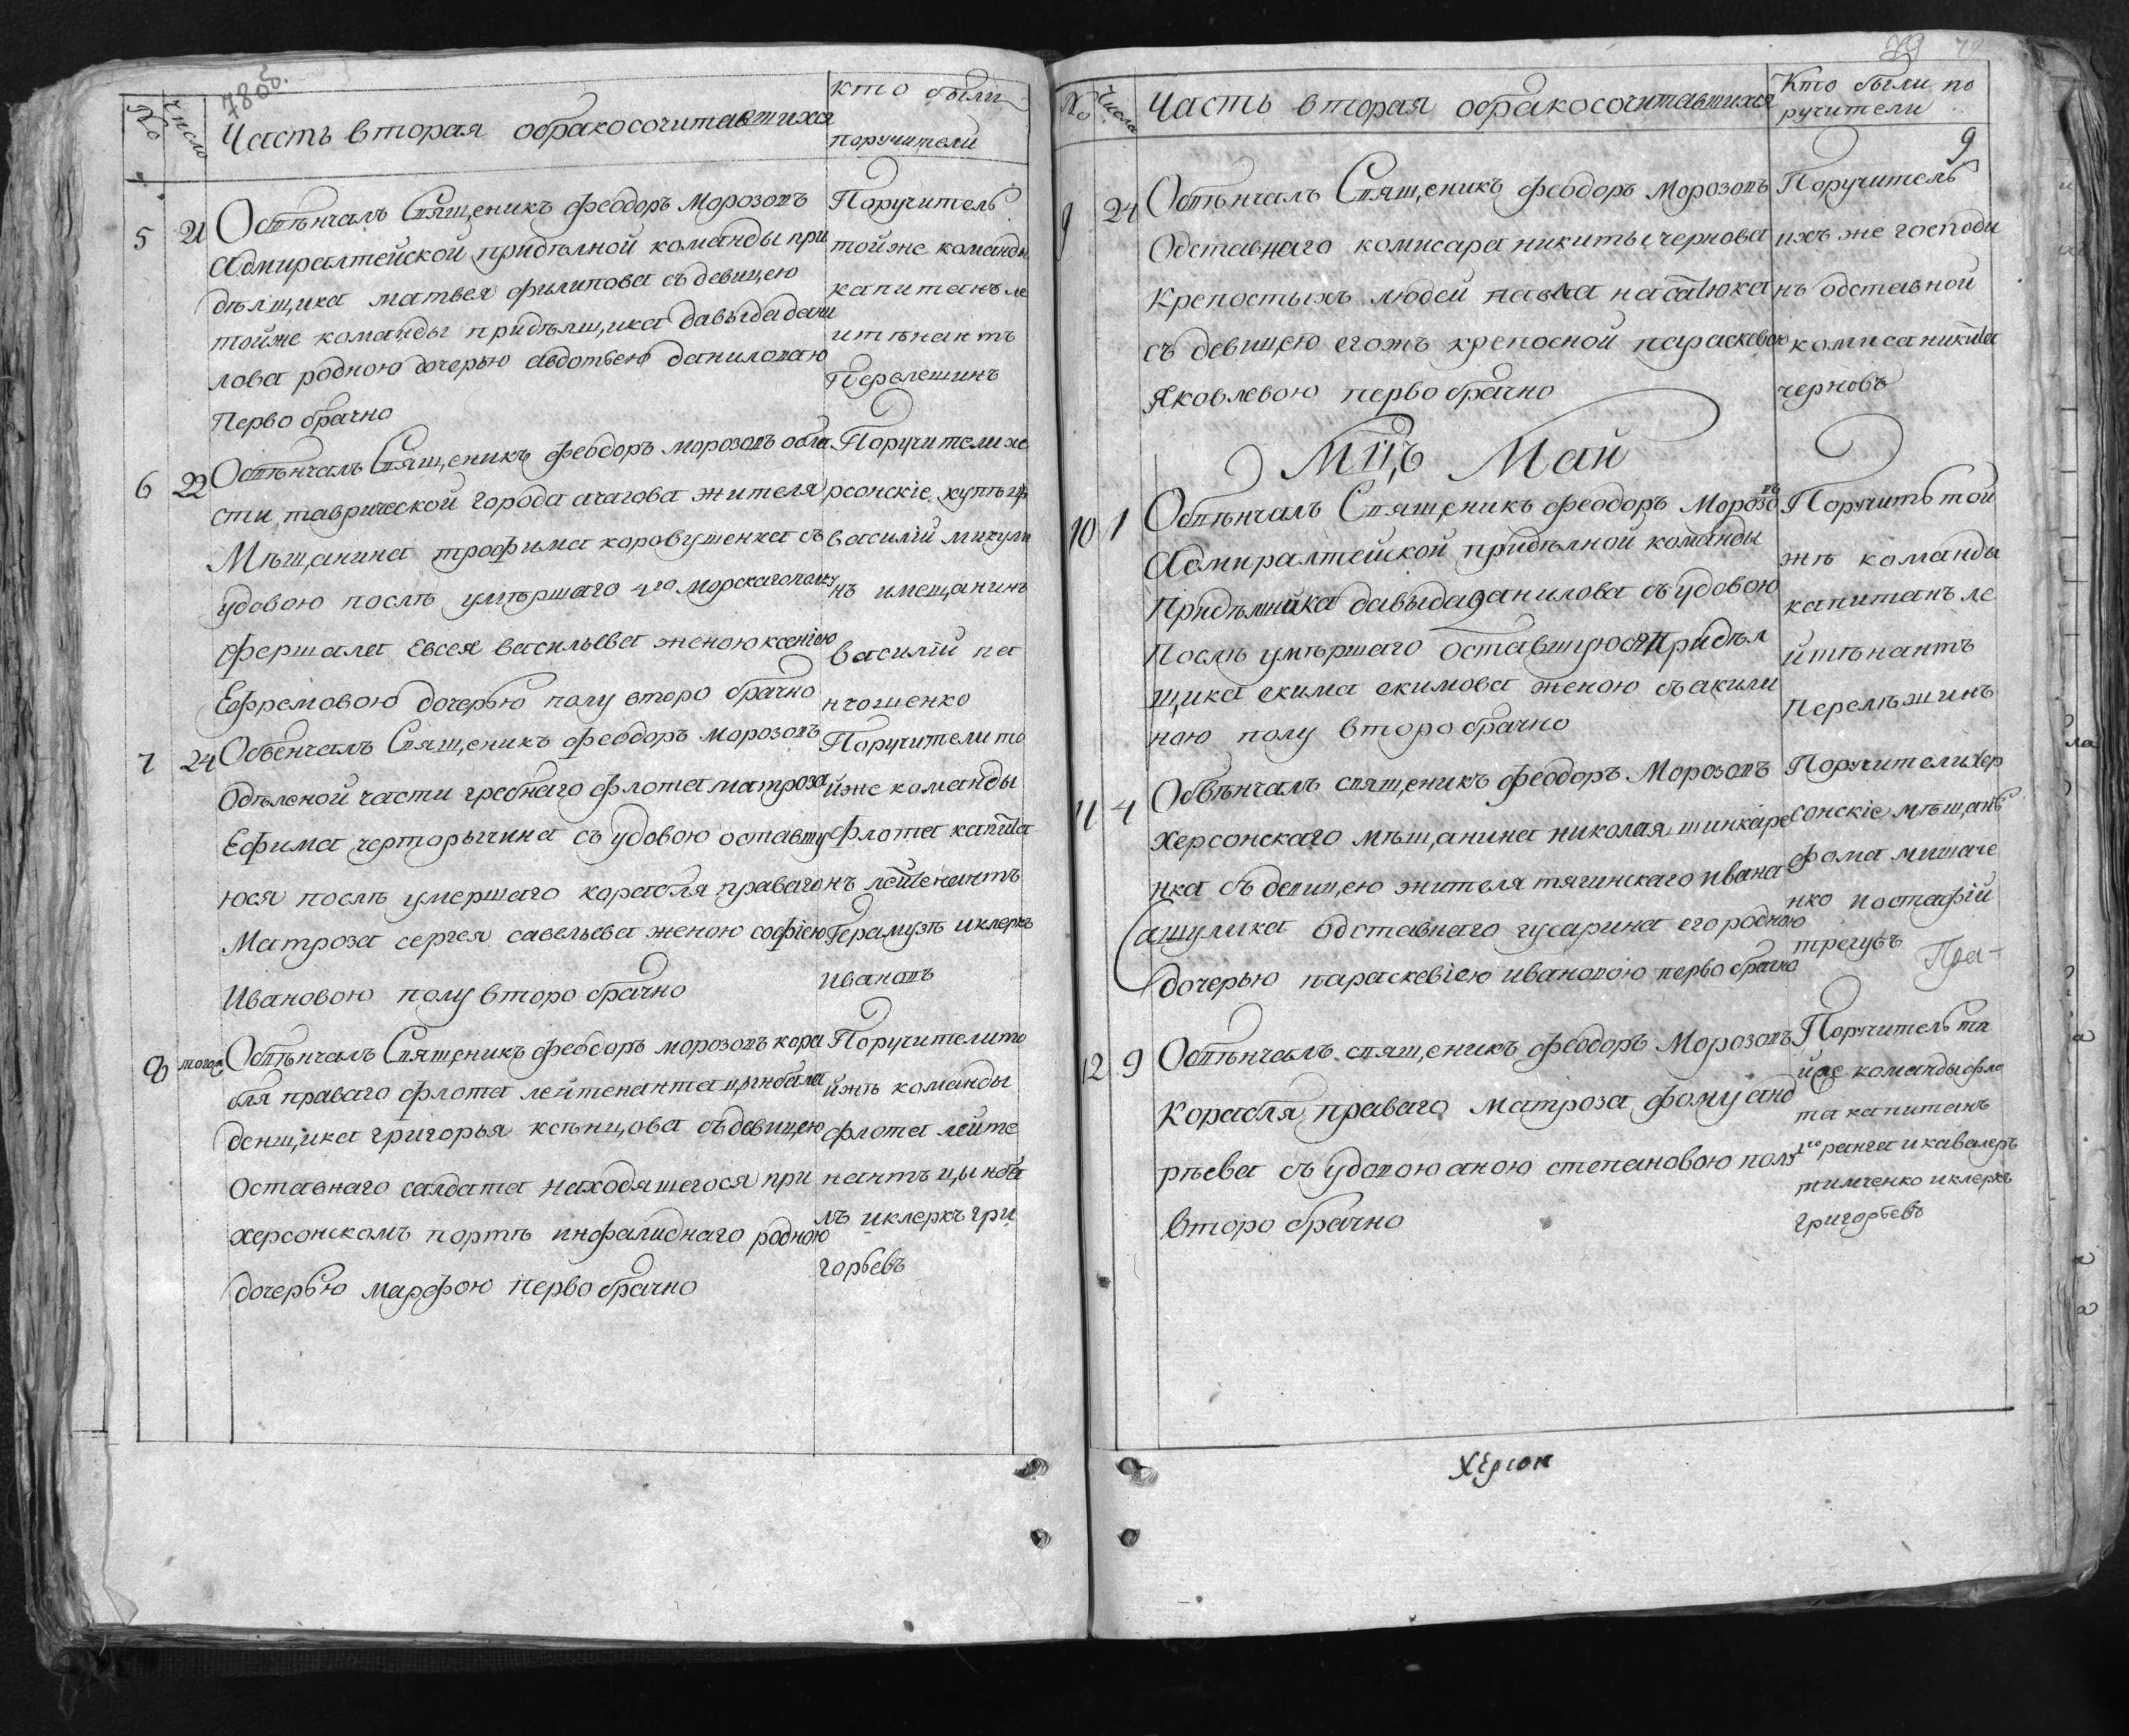 78 об.
№
Число
Часть вторая обракосочитавшихся
кто были
поручители
5
21
Обвѣнчалъ Священикъ феодоръ Морозовъ
адмиралтейской придѣлной команды при
дѣлщика матвея филипова съ девицею
тойже команды придѣлщика давыда дани
лова родною дочерью авдотьею даниловою
Перво брачно
Поручитель
тойже команды
капитанъ ле
итѣнантъ
Перелешинъ
6
22
Обвѣнчалъ Священикъ феодоръ морозовъ обла
сти таврической города ачагова жителя
Мѣщанина трофима коровушенка съ
удовою послѣ умѣршаго 4го морскаго полку
фершала Евсея васильева женою ксениею
Ефремовою дочерью полу второ брачно
Поручители хе
рсонскіе купѣцъ
василій микули
нъ имещанинъ
василій па
нчошенко
7
24
Обвенчалъ Священикъ феодоръ морозовъ
Одѣленой части гребнаго флота матроза
Ефима черторыгина съ удовою оставшу
юся послѣ умершаго корабля праваго
Матроза сергея савельева женою софиею
Ивановою полу второ брачно
Поручители то
йже команды
флота капита
нъ лейтенантъ
Герамузъ иклеркъ
ивановъ
8
тогож
Обвѣнчалъ Священикъ феодоръ морозовъ кора
бля праваго флота лейтенанта цынбала
денщика григорья ксѣнцова съ девицею
Оставнаго салдата находящегося при
херсонскомъ портѣ инфалиднаго родною
дочерью марфою перво брачно
Поручители то
йжѣ команды
флота лейте
нантъ цынба
лъ иклеркъ гри
горьевъ
79
№
Числа
Часть вторая обракосочитавшихся
Кто были по
ручители
9
9
24
Обвѣнчалъ Священикъ феодоръ Морозовъ
Одставнаго комисара никиты чернова
крепостыхъ людей павла насалюка
съ девицею егожъ крепосной параскевою
Яковлевою перво брачно
Поручитель
ихъ же господи
нъ одставной
комиса никита
черновъ
Мцъ Май
10
1
Обвѣнчалъ Священикъ феодоръ Морозовъ
Адмиралтейской придѣлной команды
Придѣлщика давыда данилова съ удовою
Послѣ умѣршаго оставшуюся придѣл
щика екима екимова женою съ акили
ною полу второ брачно
Поручитъ той
жѣ команды
капитанъ ле
йтѣнантъ
Перелѣшинъ
11
4
Обвѣнчалъ священикъ феодоръ Морозовъ
херсонскаго мѣщанина николая шинкаре
нка съ девицею жителя тягинскаго ивана
ашулика одставнаго гусарина его родною
дочерью параскевіею ивановою перво брачно
Поручители хер
сонскіе мѣщанѣ
фома мишаче
нко иостафій
трегубъ
Пра-
12
9
Обвѣнчалъ священикъ феодоръ Морозовъ
Корабля праваго матроза фому анд
рѣева съ удовою аною степановою полу
второ брачно
Поручитель та
йже команды фло
та капитанъ
1го ранга и кавалеръ
тимченко иклеркъ
григорьевъ
Херсон